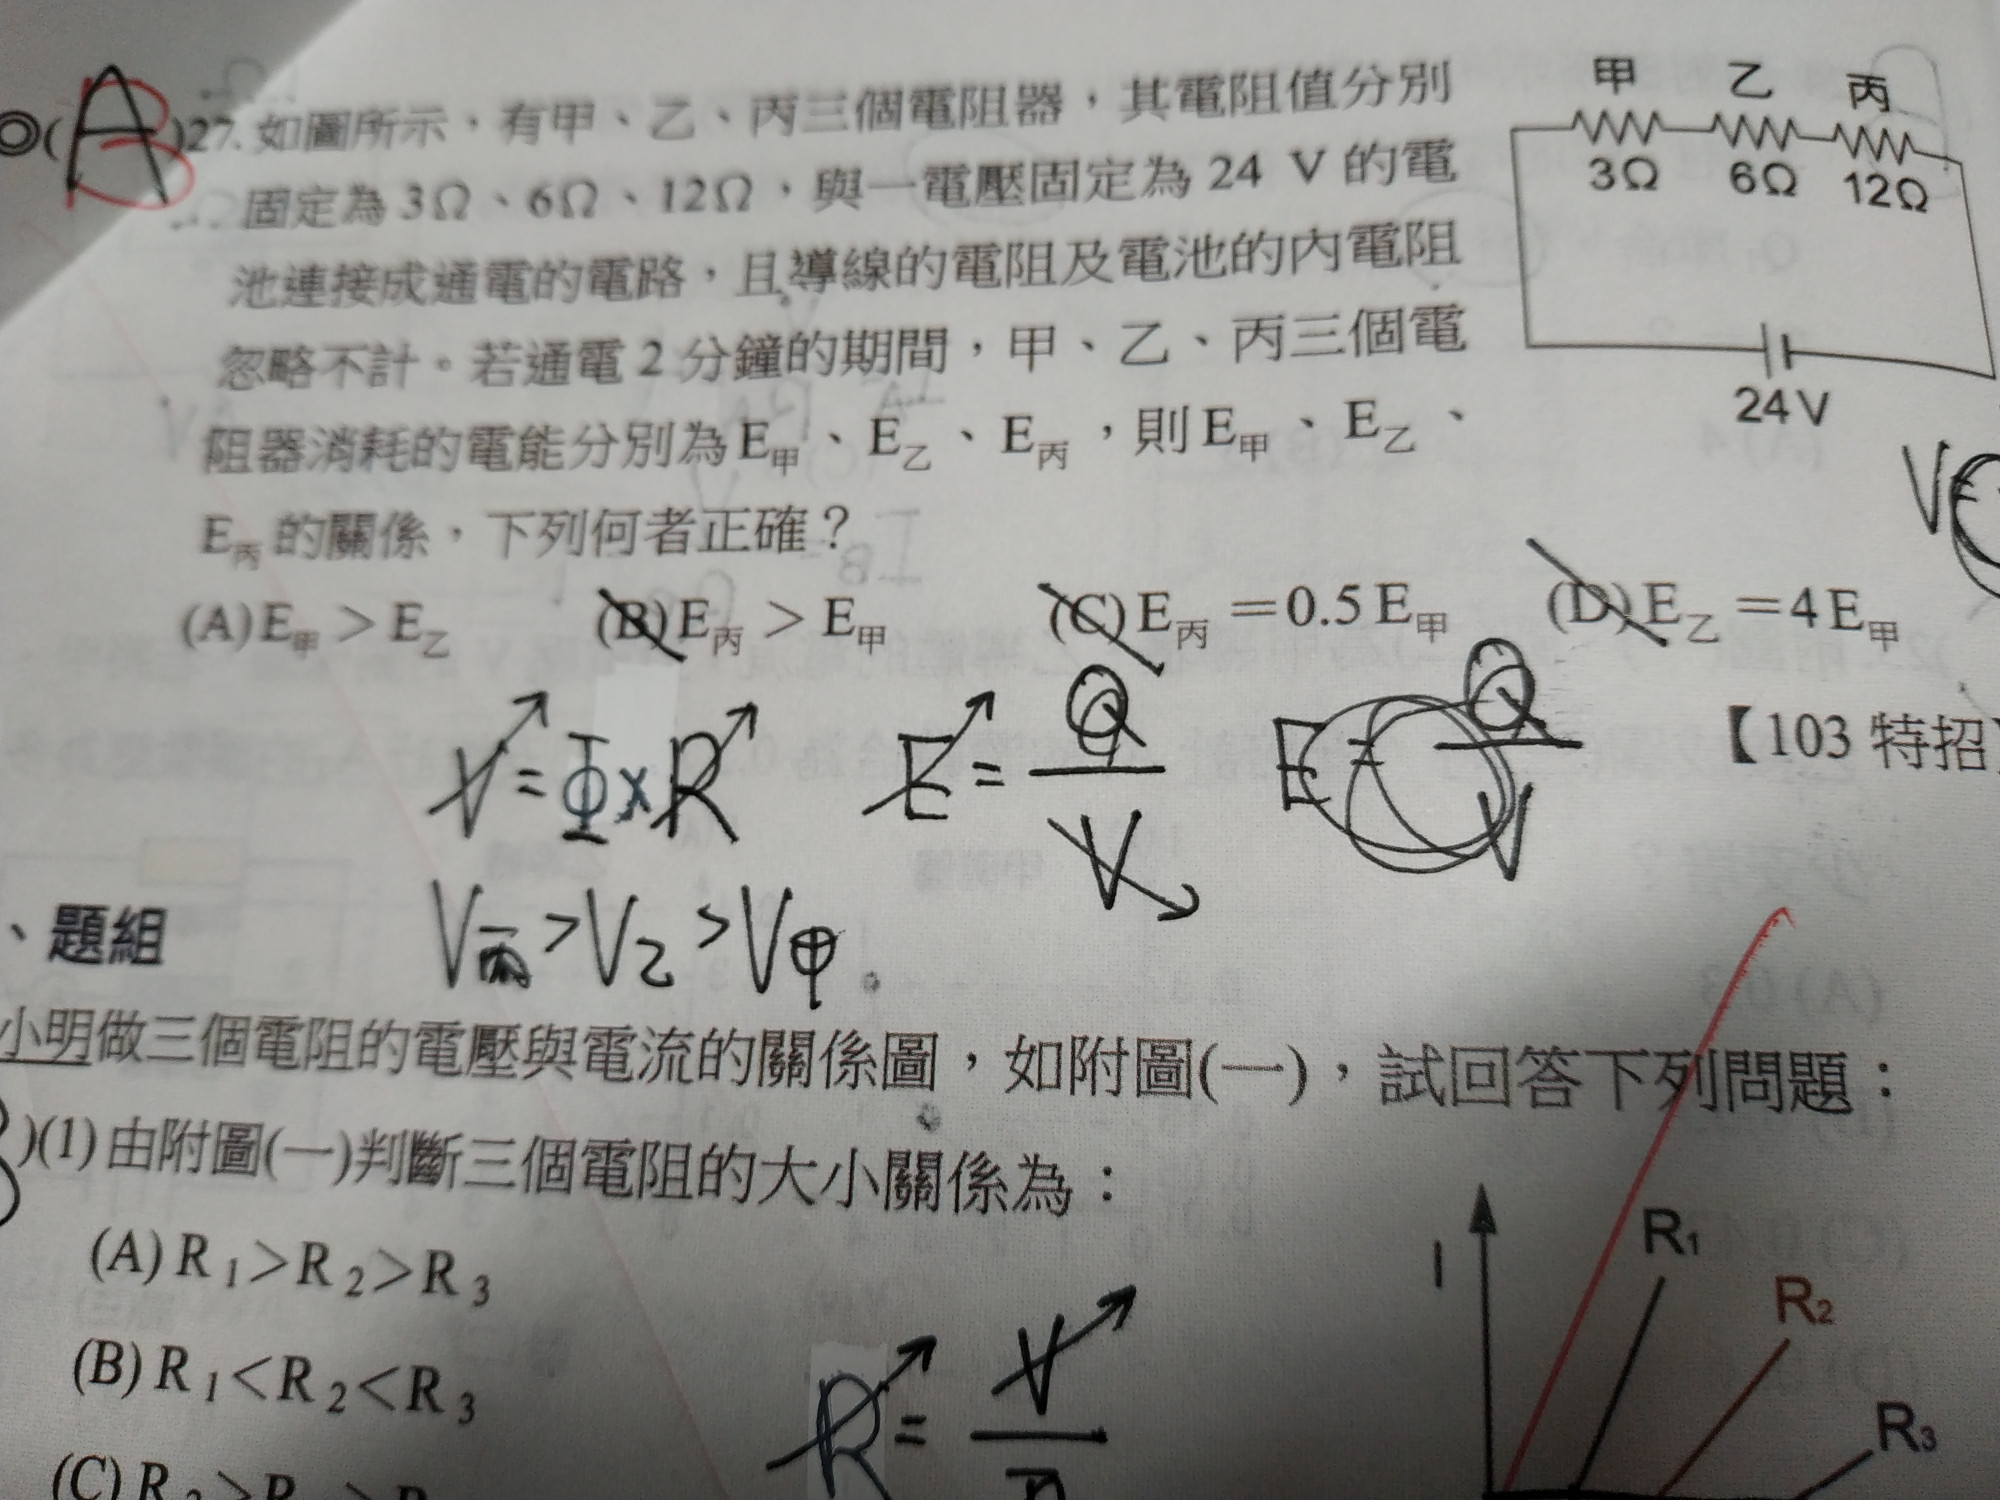 ◎( A )27.如圖所示，有甲、乙、丙三個電阻器，其電阻值分別
固定為 3Ω、6Ω、12Ω，與一電壓固定為 24 V 的電
池連接成通電的電路，且導線的電阻及電池的內電阻
忽略不計。若通電 2 分鐘的期間，甲、乙、丙三個電
阻器消耗的電能分別為 E甲、E乙、E丙，則 E甲、E乙、
E丙 的關係，下列何者正確？
甲 乙 丙
3Ω 6Ω 12Ω
24V
(A) E甲 > E乙 (B) E丙 > E甲 (C) E丙 = 0.5 E甲 (D) E乙 = 4 E甲
【103 特招】
V = I × R
E = Q / V
E = Q / V
V丙 > V乙 > V甲
、題組
小明做三個電阻的電壓與電流的關係圖，如附圖(一)，試回答下列問題：
)(1) 由附圖(一)判斷三個電阻的大小關係為：
(A) R1>R2>R3
(B) R1<R2<R3
I
R1
R2
R3
R = V